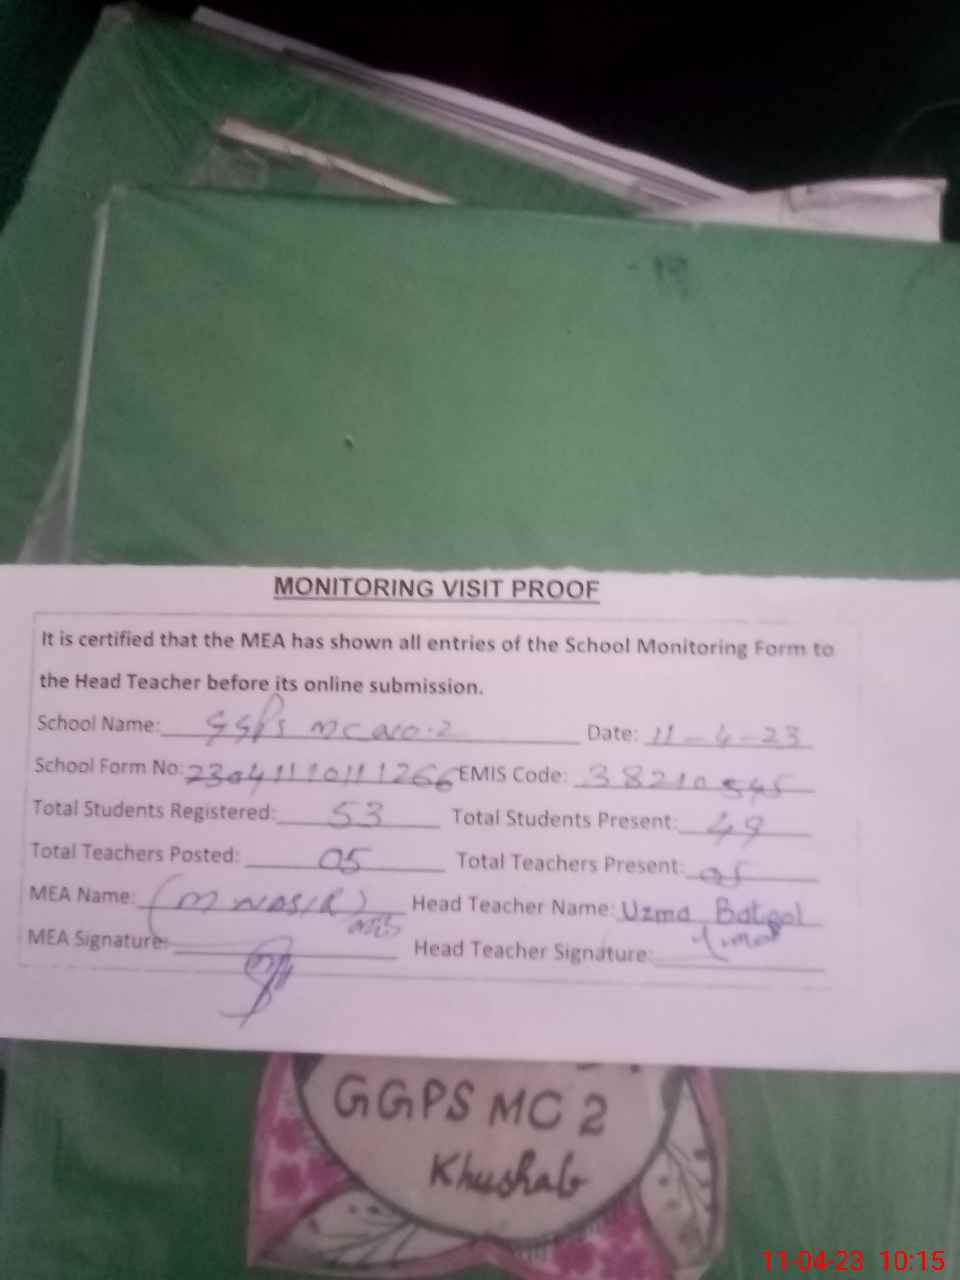 MONITORING VISIT PROOF
It is certified that the MEA has shown all entries of the School Monitoring Form to
the Head Teacher before its online submission.
School Name: GGPS MC NO.2 Date: 11-4-23
School Form No: 230411110111266 EMIS Code: 38210545
Total Students Registered: 53 Total Students Present: 49
Total Teachers Posted: 05 Total Teachers Present: 05
MEA Name: (M NASIR) Head Teacher Name: Uzma Batool
MEA Signature: Head Teacher Signature:
GGPS MC 2
Khushab
11-04-23 10:15